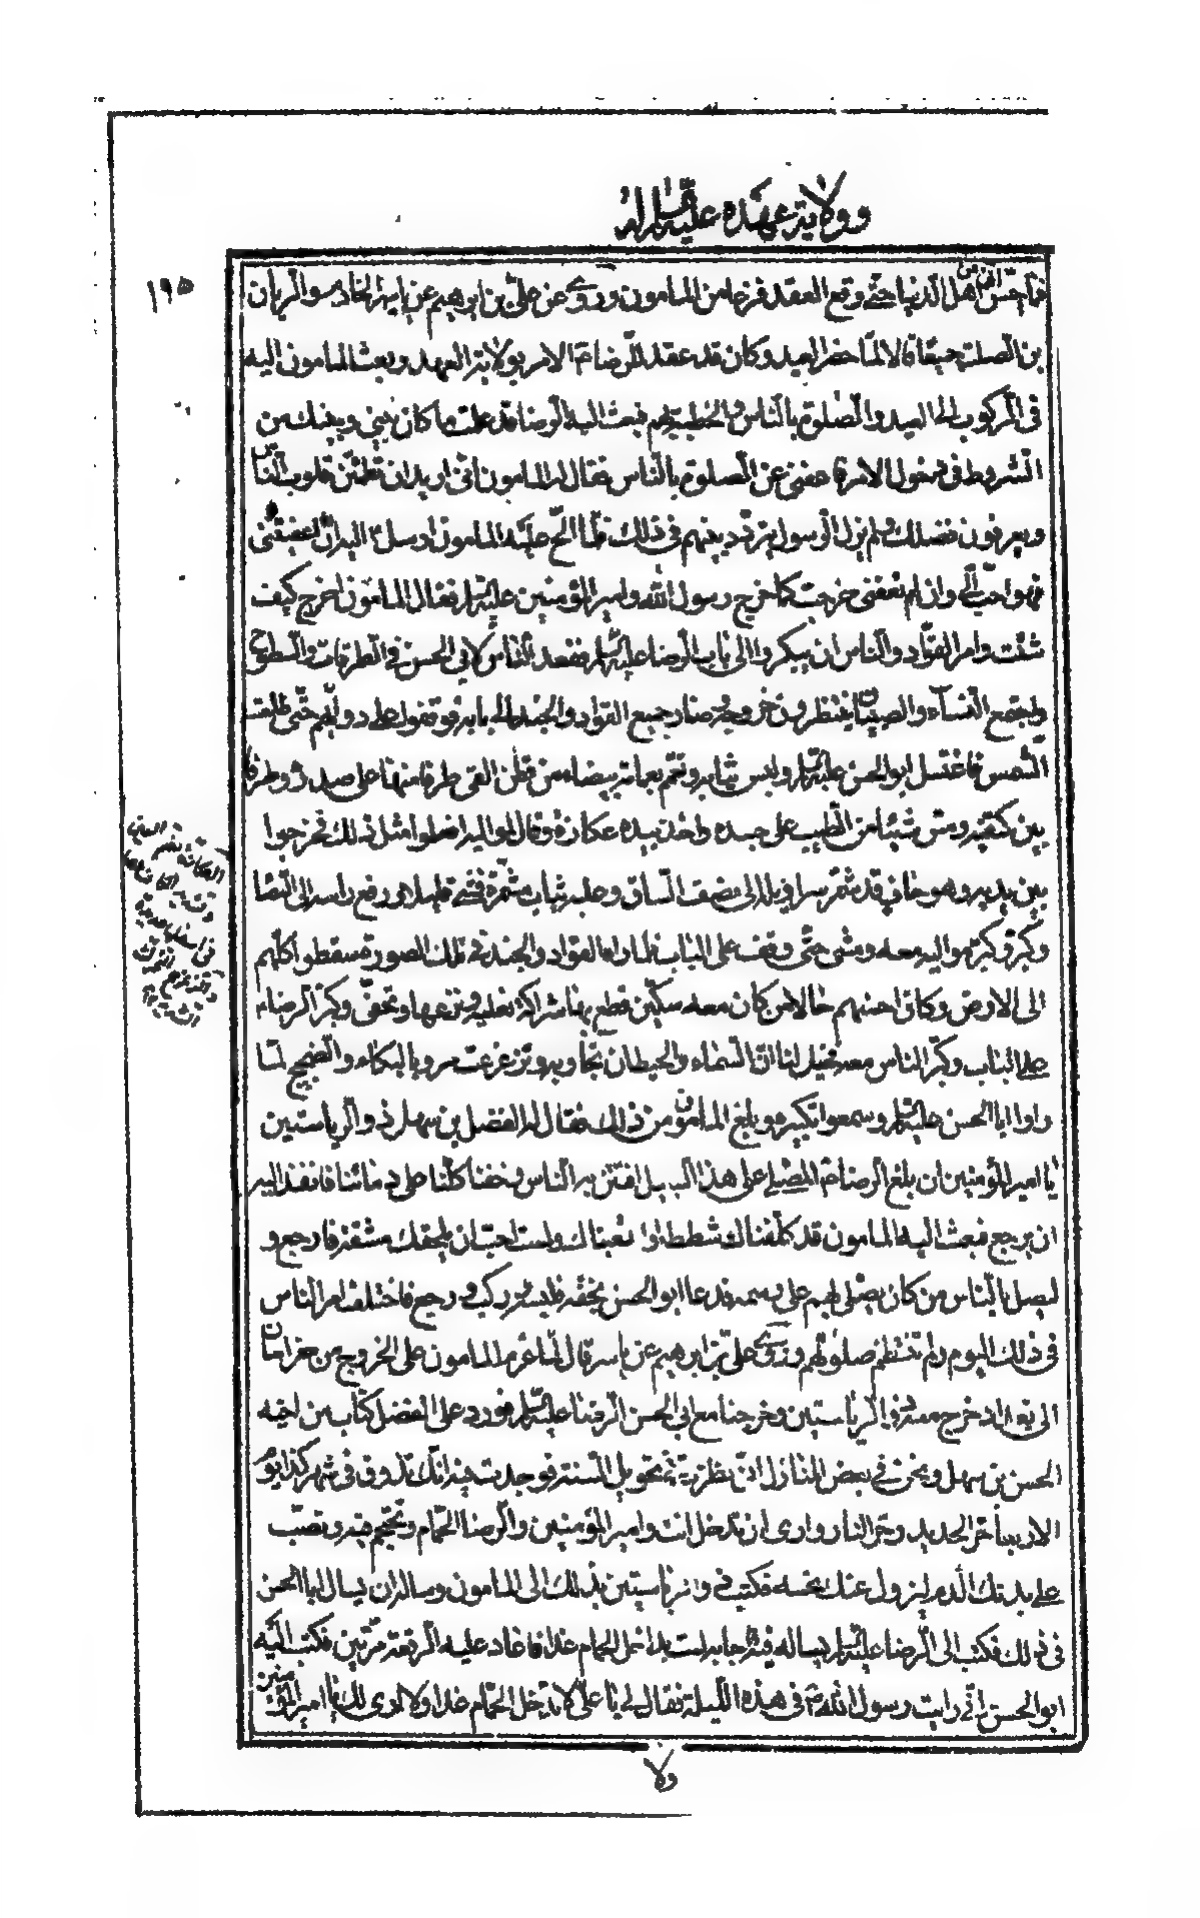 وولاية عهده عليه السلام
١٩٥
فما احسّ احد من اهل الدّنيا حتّى وقع العقد فزعا من المامون وروى عن علىّ بن ابرهيم عن ياسر الخادم والرّيان
بن الصّلت جميعا قالا لمّا حضر العيد وكان قد عقد للرّضا ع الامر بولاية العهد وبعث المامون اليه
فى الرّكوب الى العيد والصّلوة بالنّاس والخطبة لهم فبعث اليه الرضا قد علمت ما كان بينى وبينك من
الشّروط فى دخول الامر فاعفنى عن الصّلوة بالنّاس فقال له المامون انّى اريد ان تطمئنّ قلوب النّاس
ويعرفون فضلك ولم يزل الرسول يتردّد بينهم فى ذلك فلمّا الحّ عليه المامون ارسل اليه ان اعفيتنى
فهو احبّ الىّ وان لم تعفنى خرجت كما خرج رسول اللّه وامير المؤمنين عليه السّلم فقال المامون اخرج كيف
شئت وامر القوّاد والنّاس ان يبكروا الى باب الرّضا عليه السّلم فقعد النّاس لابى الحسن فى الطّرقات والسّطوح
واجتمع النّسآء والصبيان ينتظرون خروجه وصار جميع القوّاد والجند الى بابه فوقفوا على دوابّهم حتّى طلعت
الشّمس فاغتسل ابو الحسن عليه السّلم ولبس ثيابه وتعمّم بعمامة بيضاء من قطن القى طرفا منها على صدره وطرفا
بين كتفيه ومسّ شيئا من الطّيب على جسده واخذ بيده عكازة وقال لمواليه افعلوا مثل ذلك فخرجوا
بين يديه وهو حاف قد شمّر سراويله الى نصف السّاق وعليه ثياب مشمّرة فمشى قليلا ورفع راسه الى السّماء
وكبّر وكبّر مواليه معه ومشى حتّى وقف على الباب فلمّا راه القواد والجند فى تلك الصورة سقطوا كلّهم
الى الارض وكان احسنهم حالا من كان معه سكّين قطع بها شراكة نعليه ونزعها وتحفّى وكبّر الرضا ع
على الباب وكبّر الناس معه فخيل لنا انّ السّماء والحيطان تجاوبه وتزعزعت مرو بالبكاء والضّجيج لمّا
راوا ابا الحسن عليه السّلم وسمعوا تكبيره وبلغ المامون من ذلك فقال له الفضل بن سهل ذو الرّياستين
يا امير المؤمنين ان بلغ الرضا ع المصلّى على هذا السّبيل افتتن به النّاس وخفنا كلّنا على دمائنا فانفذ اليه
ان يرجع فبعث اليه المامون قد كلّفناك شططا واتعبناك ولست احبّ ان يلحقك مشقّة فارجع و
ليصل بالنّاس من كان يصلّى بهم على رسمه فدعا ابو الحسن بخفّه فلبسه وركب ورجع فاختلف امر النّاس
فى ذلك اليوم ولم تنتظم صلوتهم وروى علىّ بن ابرهيم عن ياسر قال لمّا عزم المامون على الخروج من خراسان
الى بغداد خرج معه ذو الرّياستين وخرجنا مع ابى الحسن الرّضا عليه السّلم فورد على الفضل كتاب من اخيه
الحسن بن سهل ونحن فى بعض المنازل انّى نظرت فى تحويل السّنة فوجدت فيه انّك تذوق فى شهر كذا يوم
الاربعا حرّ الحديد وحرّ النار وارى ان تدخل انت وامير المؤمنين والرّضا الحمّام وتحتجم فيه وتصبّ
على بدنك الدّم ليزول عنك نحسه فكتب ذو الرياستين بذلك الى المامون وساله ان يسال ابا الحسن
فى ذلك فكتب الى الرّضا عليه السّلم يساله فيه فاجابه لست بداخل الحمام غدا فاعاد عليه الرّقعة مرّتين فكتب اليه
ابو الحسن انّى رايت رسول اللّه ص فى هذه اللّيلة فقال لى يا علىّ لا تدخل الحمّام غدا ولا ارى لك يا امير المؤمنين
ولا